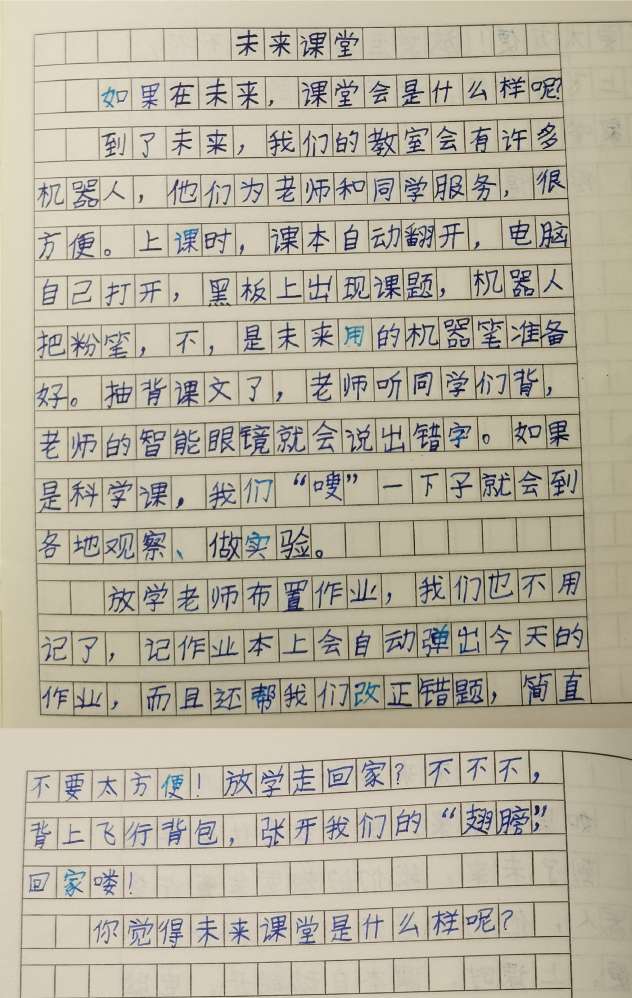 未来课堂
如果在未来，课堂会是什么样呢？
到了未来，我们的教室会有许多
机器人，他们为老师和同学服务，很
方便。上课时，课本自动翻开，电脑
自己打开，黑板上出现课题，机器人
把粉笔，不，是未来用的机器笔准备
好。抽背课文了，老师听同学们背，
老师的智能眼镜就会说出错字。如果
是科学课，我们“嗖”一下子就会到
各地观察、做实验。
放学老师布置作业，我们也不用
记了，记作业本上会自动弹出今天的
作业，而且还帮我们改正错题，简直
不要太方便！放学走回家？不不不，
背上飞行背包，张开我们的“翅膀”，
回家喽！
你觉得未来课堂是什么样呢？